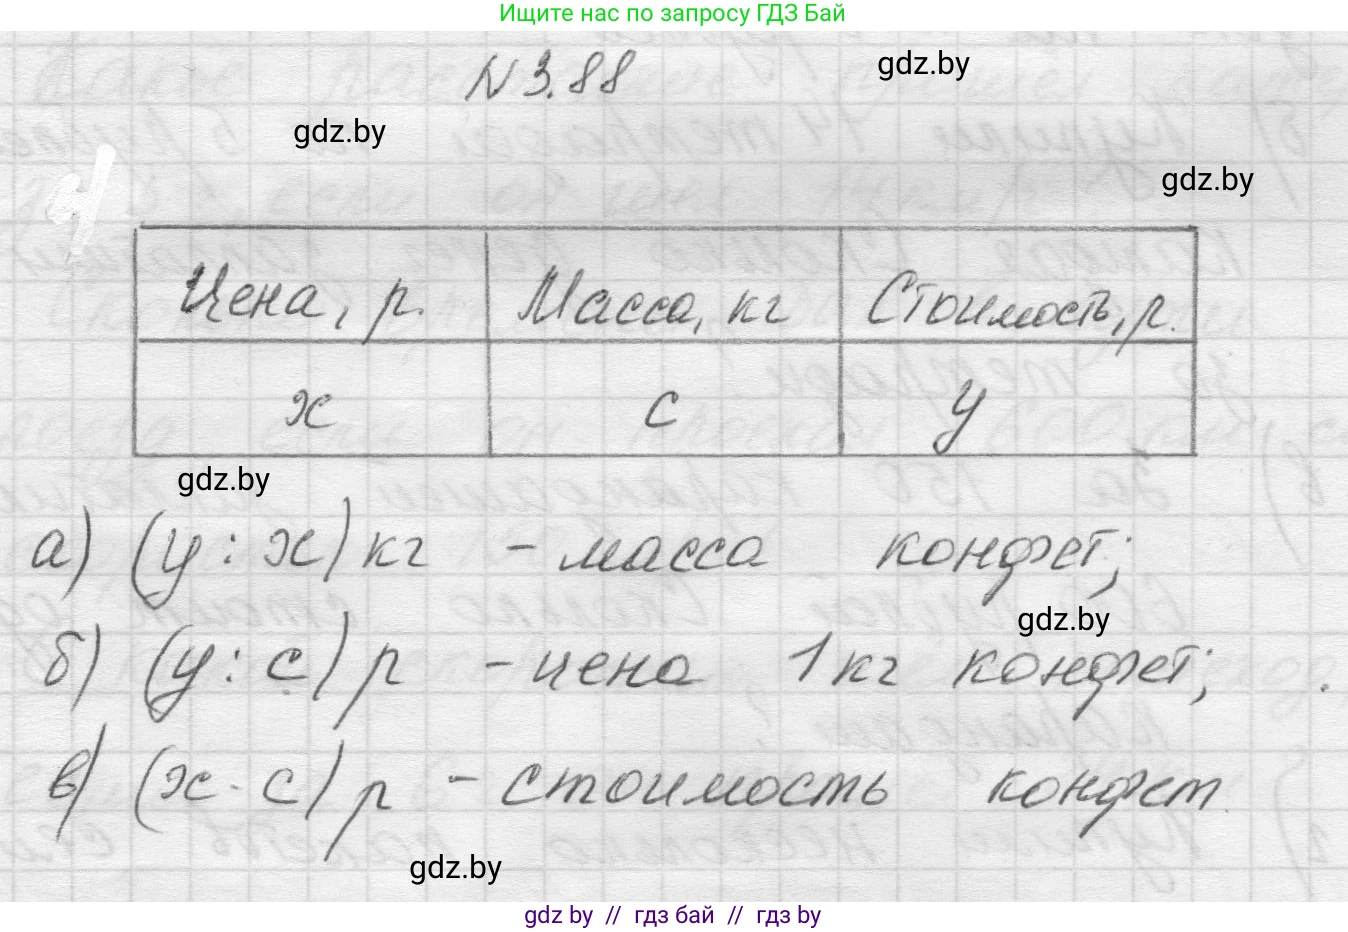 Ищите нас по запросу ГДЗ Бай
N 3.88
gdz.by
gdz.by
gdz.by
Цена, р. Масса, кг Стоимость, р.
х с у
gdz.by
а) (у : х) кг - масса конфет;
gdz.by
б) (у : с) р - цена 1 кг конфет;
в) (х · с) р - стоимость конфет.
gdz.by
gdz by // гдз бай // гдз by